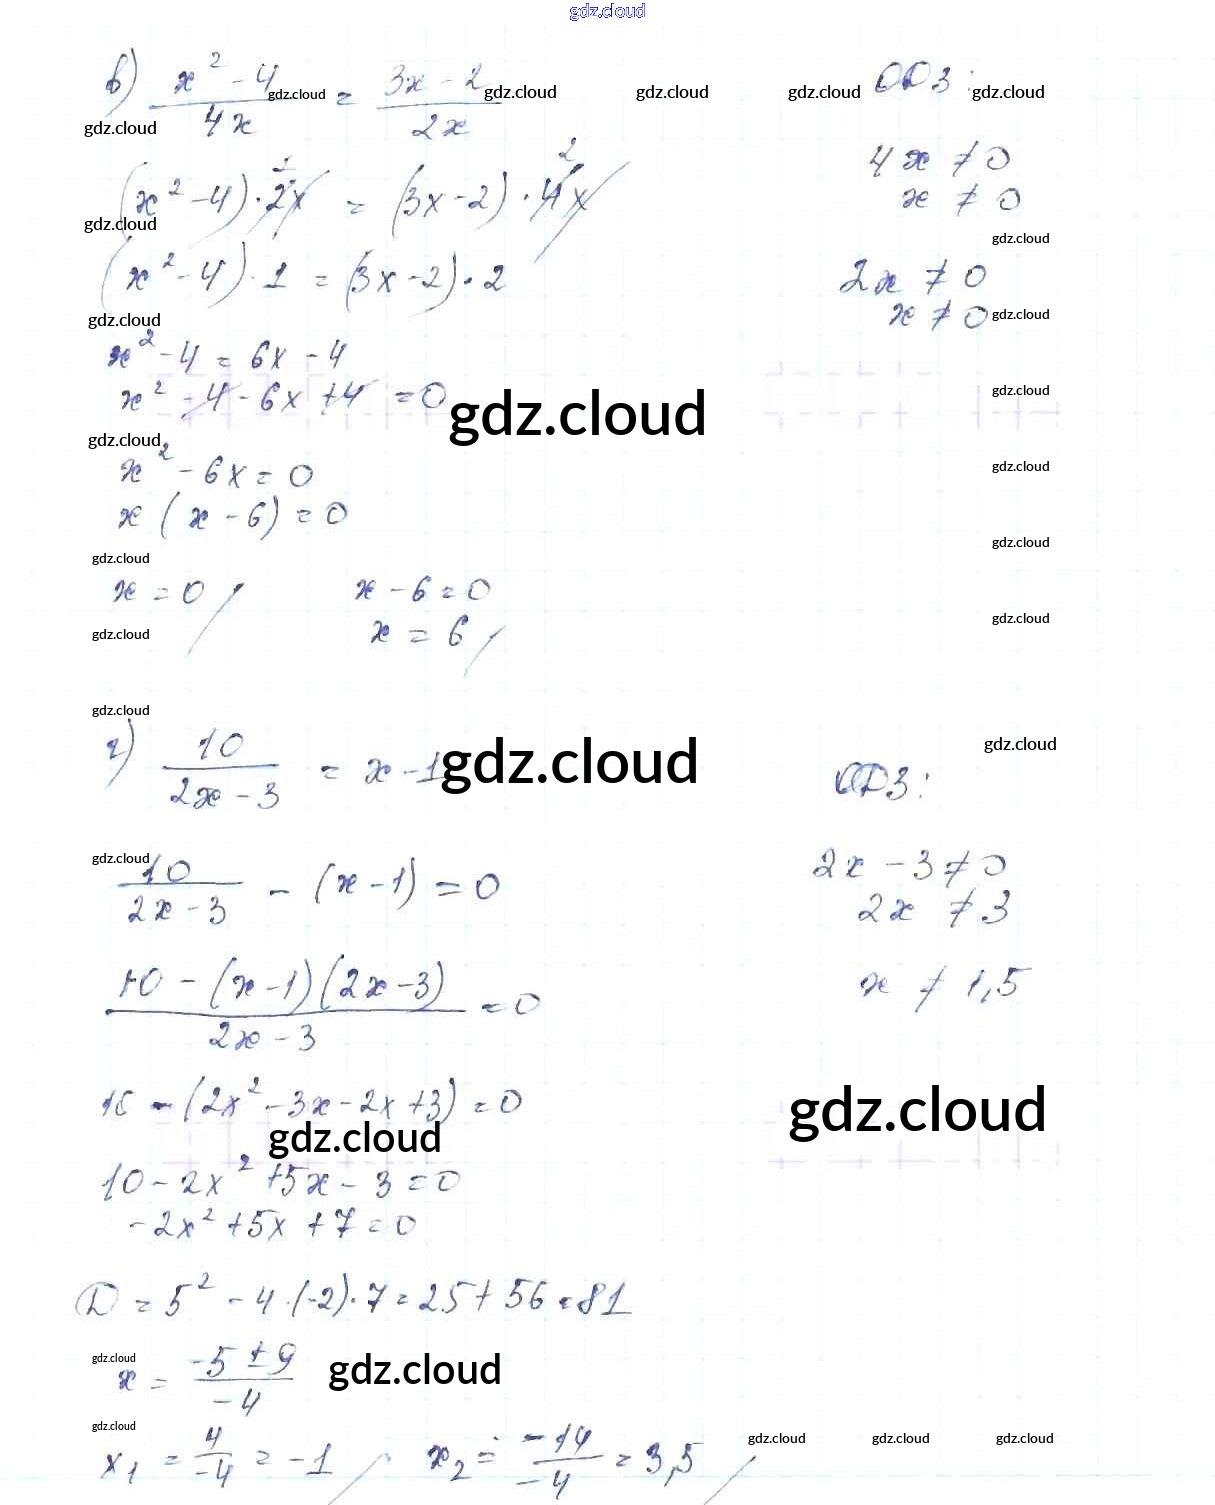 gdz.cloud
в) (x² - 4)/(4x) = (3x - 2)/(2x) ОДЗ:
gdz.cloud gdz.cloud gdz.cloud gdz.cloud gdz.cloud
gdz.cloud
4x ≠ 0
(x² - 4) · 2x = (3x - 2) · 4x x ≠ 0
1 2
gdz.cloud
gdz.cloud
(x² - 4) · 1 = (3x - 2) · 2 2x ≠ 0
gdz.cloud x ≠ 0 gdz.cloud
x² - 4 = 6x - 4
x² - 4 - 6x + 4 = 0 gdz.cloud gdz.cloud
gdz.cloud
x² - 6x = 0 gdz.cloud
x (x - 6) = 0
gdz.cloud gdz.cloud
x = 0 / x - 6 = 0
gdz.cloud x = 6 / gdz.cloud
gdz.cloud
г) 10/(2x - 3) = x - 1 gdz.cloud ОДЗ: gdz.cloud
gdz.cloud
10/(2x - 3) - (x - 1) = 0 2x - 3 ≠ 0
2x ≠ 3
(10 - (x - 1)(2x - 3))/(2x - 3) = 0 x ≠ 1,5
10 - (2x² - 3x - 2x + 3) = 0 gdz.cloud
gdz.cloud
10 - 2x² + 5x - 3 = 0
- 2x² + 5x + 7 = 0
D = 5² - 4 · (-2) · 7 = 25 + 56 = 81
gdz.cloud
x = (-5 ± 9)/(-4) gdz.cloud
gdz.cloud
x₁ = 4/(-4) = -1 / x₂ = (-14)/(-4) = 3,5 / gdz.cloud gdz.cloud gdz.cloud